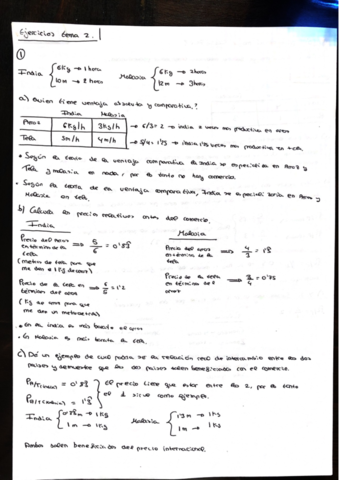 Ejercicios tema 2.
①
India { 6kg → 1 hora
10m → 2 horas
Malasia { 6kg → 2 horas
12m → 3 horas
a) Quien tiene ventaja absoluta y comparativa?
India Malasia
Arroz 6kg/h 3kg/h → 6/3 = 2 → India 2 veces más productiva en arroz
Tela 5m/h 4m/h → 5/4 = 1'25 → India 1'25 veces más productiva en tela
• Según la teoría de la ventaja India se especializa en arroz y
tela y Malasia en nada, por lo tanto no hay comercio.
• Según la teoría de la ventaja comparativa, India se especializaría en arroz y
Malasia en tela.
b) Calcula los precios relativos antes del comercio.
India
Malasia
Precio del arroz
en términos de la
tela
⟹ 5/6 = 0'83
(metros de tela para que
me den 1 kg de arroz)
Precio del arroz
en términos de la
tela
⟹ 4/3 = 1'3
Precio de la tela en
términos del arroz
⟹ 6/5 = 1'2
(kg de arroz para que
me den un metro de tela)
Precio de la tela
en términos del
arroz
⟹ 3/4 = 0'75
• En la India es más barato el arroz
• En Malasia es más barata la tela.
c) Dé un ejemplo de cual podría ser la relación real de intercambio entre los dos
países y demuestre que los dos países salen beneficiados con el comercio.
= 0'83
= 1'3
} el precio tiene que estar entre los 2, por lo tanto
el 1 sirve como ejemplo.
India { 0'83m → 1kg
1m → 1kg
Malasia { 1'3m → 1kg
1m → 1kg
Ambos salen beneficiados del precio internacional.